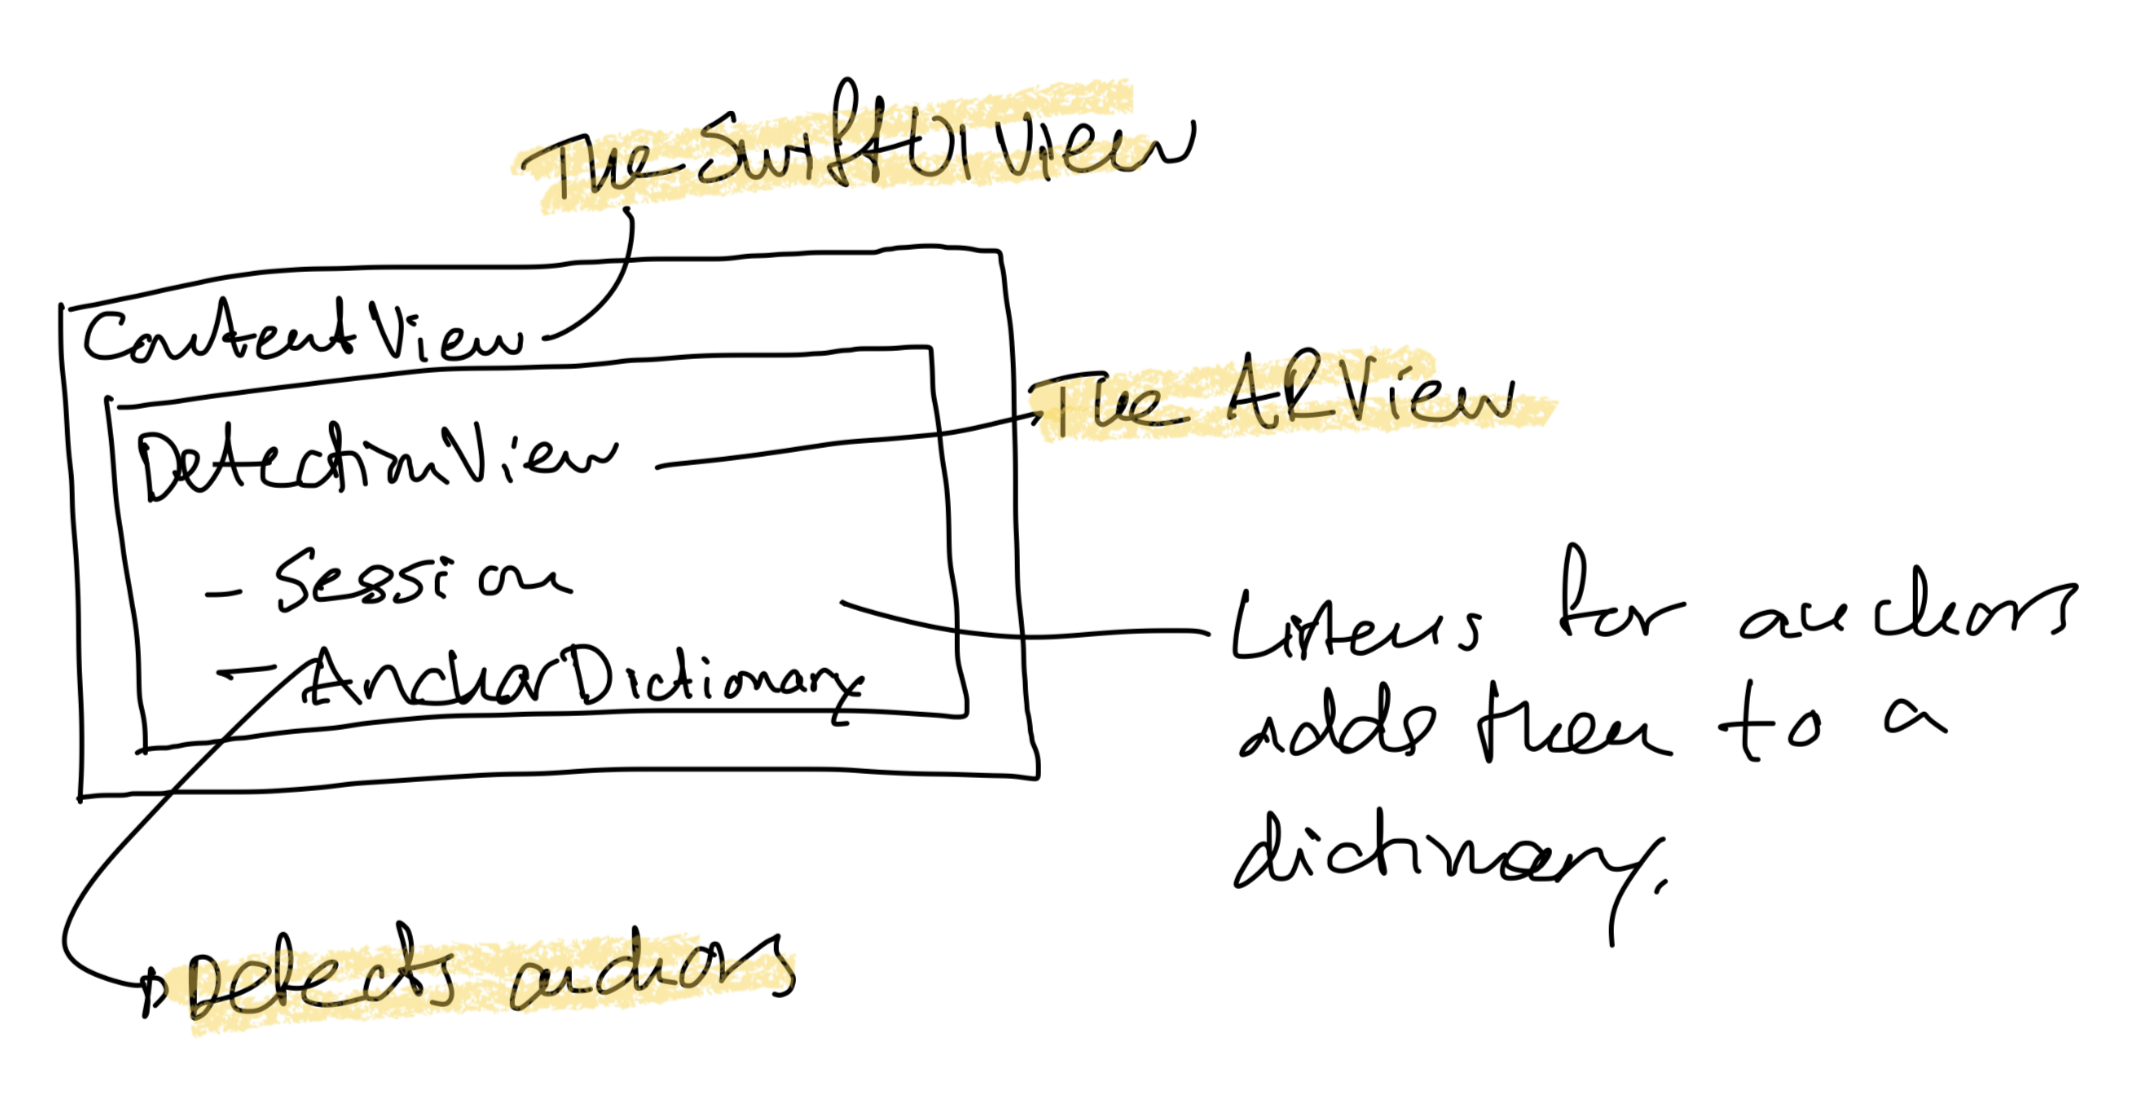 The SwiftUI View
ContentView
The ARView
DetectionView
- Session
- AnchorDictionary
Listens for anchors
adds them to a
dictionary.
Detects anchors